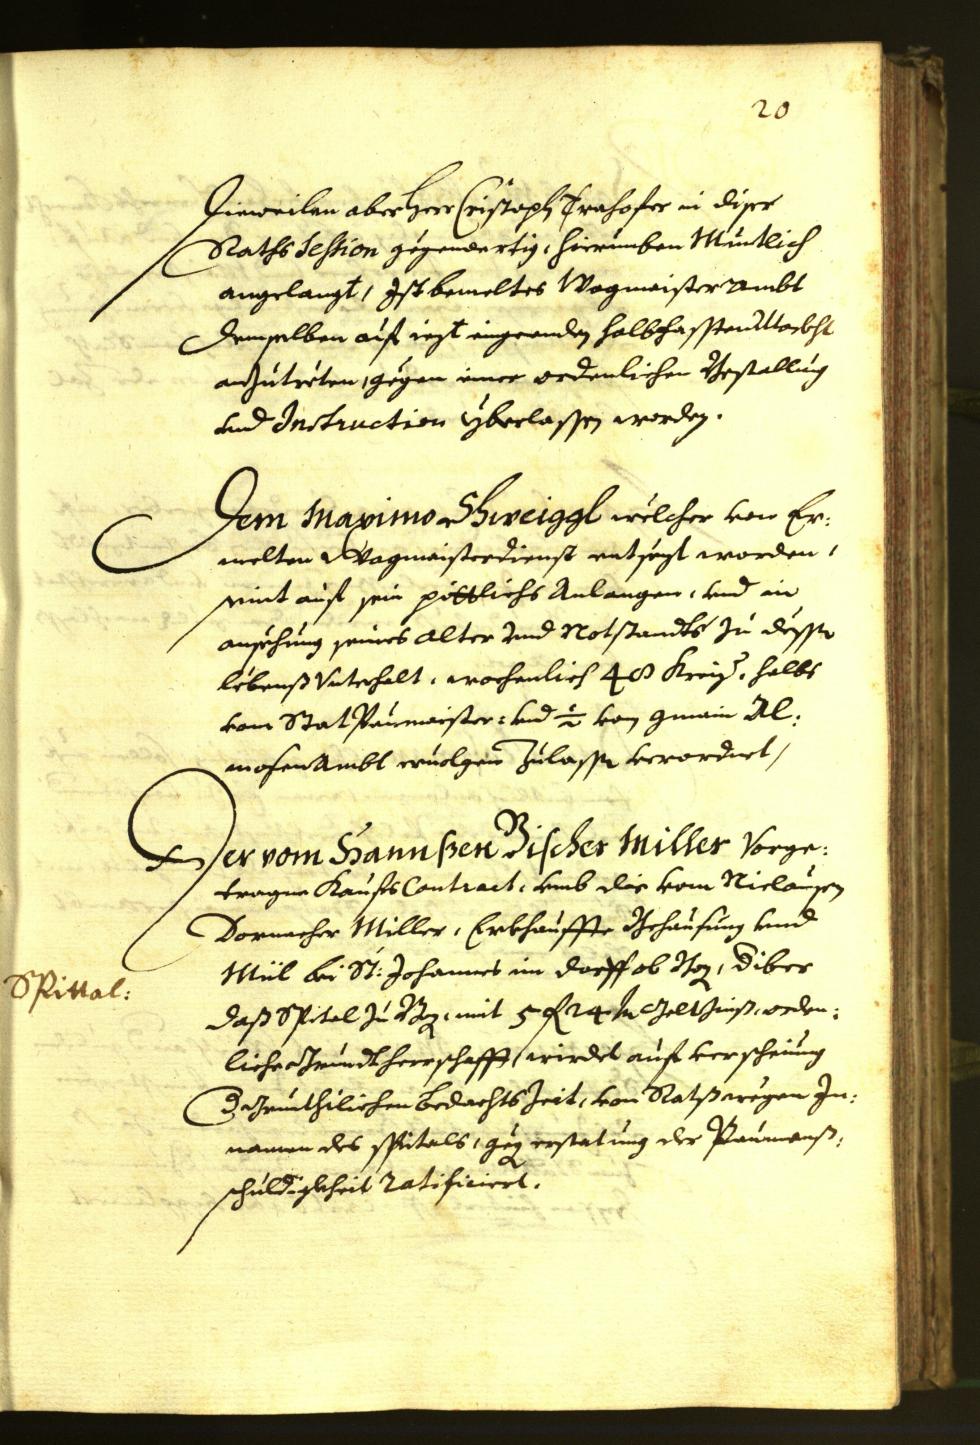 20
Dieweilen aber Herr Cristoph Trahofer in diser
Raths Session gegenwertig, hierumben Müntlich
angelangt, Ist bemeltes Wagmaister Ambt
demselben auf iezt eingeenden halbfassten Marckht
anzutreten, gegen einer ordenlichen Bestallung
und Instruction yberlassen worden.
Dem Maximo Schweiggl welcher von Er:
melten Wagmaisterdienst entsezt worden,
wirt auf sein pittlichs Anlangen, und in
ansehung seines Alter und Notstandts zu dessen
lebenß Unterhalt, wochenlich 48 Kreiz. halbs
vom Stat Paumaister: und ½ von gmain Al:
mosen Ambt ervolgen Zulassen verordnet,
Der vom Hannßen Vischer Miller Vorge:
tragne Kaufs Contract, umb die vom Niclausen
Dornacher Miller, Erkhauffte Behausung und
Mül bei St: Johannes im dorff ob Boz, diber
Spittal:
daß Spital zu Boz, mit 5 fl 24 Gelt Zinß, orden:
liche Grundtherrschafft, wirdet auf verscheinung
der bedachts Zeit, von Ratß wegen In:
namen des spitals, geg erstatung der Paumanß:
schuldigkheit Ratificiert.